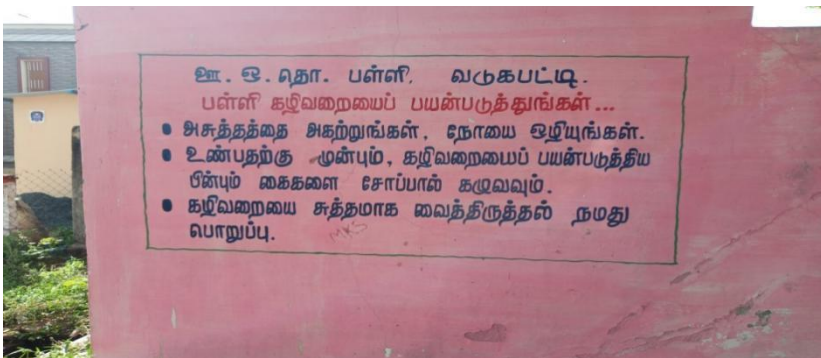 ஊ. ஒ. தொ. பள்ளி, வடுகபட்டி.
பள்ளி கழிவறையைப் பயன்படுத்துங்கள்...
• அசுத்தத்தை அகற்றுங்கள், நோயை ஒழியுங்கள்.
• உண்பதற்கு முன்பும், கழிவறையைப் பயன்படுத்திய
பின்பும் கைகளை சோப்பால் கழுவவும்.
• கழிவறையை சுத்தமாக வைத்திருத்தல் நமது
பொறுப்பு.
MKS